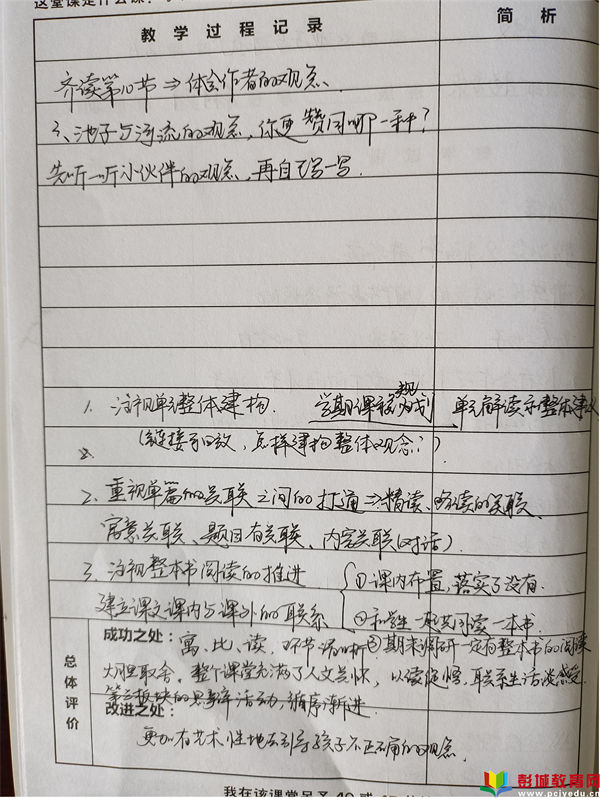 这堂课是什么课?
教 学 过 程 记 录
简 析
齐读第10节⇒体会作者的观点、
3、池子与河流的观点,你更赞同哪一种?
先听一听小伙伴的观点,再自己写一写.
1. 注视单元整体建构. 学期课程规划 单元解读和整体建议
(链接可以放,怎样建构整体观念?)
2. 重视单篇的关联之间的打通⇒精读、略读的关联、
寓意关联、题目有关联、内容关联(对话).
3. 注视整本书阅读的推进 ①课内布置,落实了没有.
建立课文课内与课外的联系 ②和学生一起共同读一本书.
总体评价
成功之处: 寓、比、读,环节清晰 ③期末调研一定有整本书的阅读
大胆取舍,整个课堂充满了人文关怀,以读促悟,联系生活谈感受.
第三板块的思辨活动,循序渐进.
改进之处:
更加有艺术性地去引导孩子不正确的观点.
我在该课堂是否
彭城教育网
www.pcjyedu.cn